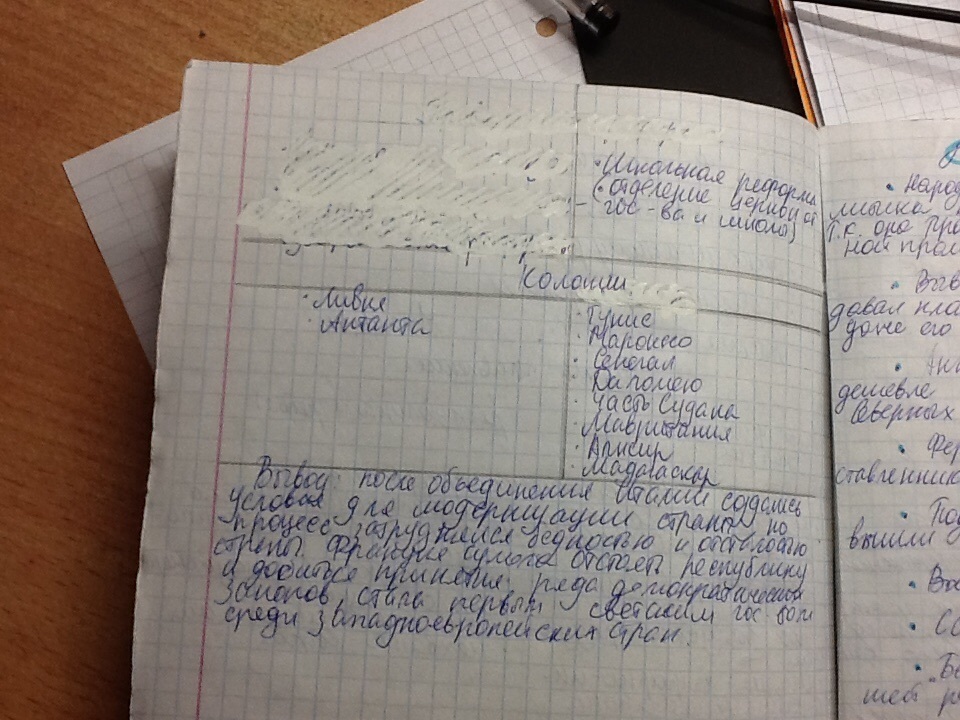 • Школьная реформа
(• отделение церкви от
гос-ва и школы)
Колонии
• Ливия
• Антанта
• Тунис
• Марокко
• Сенегал
• Дагомею
• Часть Судана
• Мавритания
• Алжир
• Мадагаскар
Вывод: после объединения Италии создались
условия для модернизации страны, но
процесс затруднялся бедностью и отсталостью
страны. Франция сумела отстоять республику
и добиться принятия ряда демократических
законов, стала первым светским гос-вом
среди западноевропейских стран.
• Народ
мышл
т.к. она про
ной пром
• Выв
давал пла
даже его
• Ан
дешевле
Северных
• Фер
ставленни
• Под
выили
• Вос
• Со
• Бе
шей р